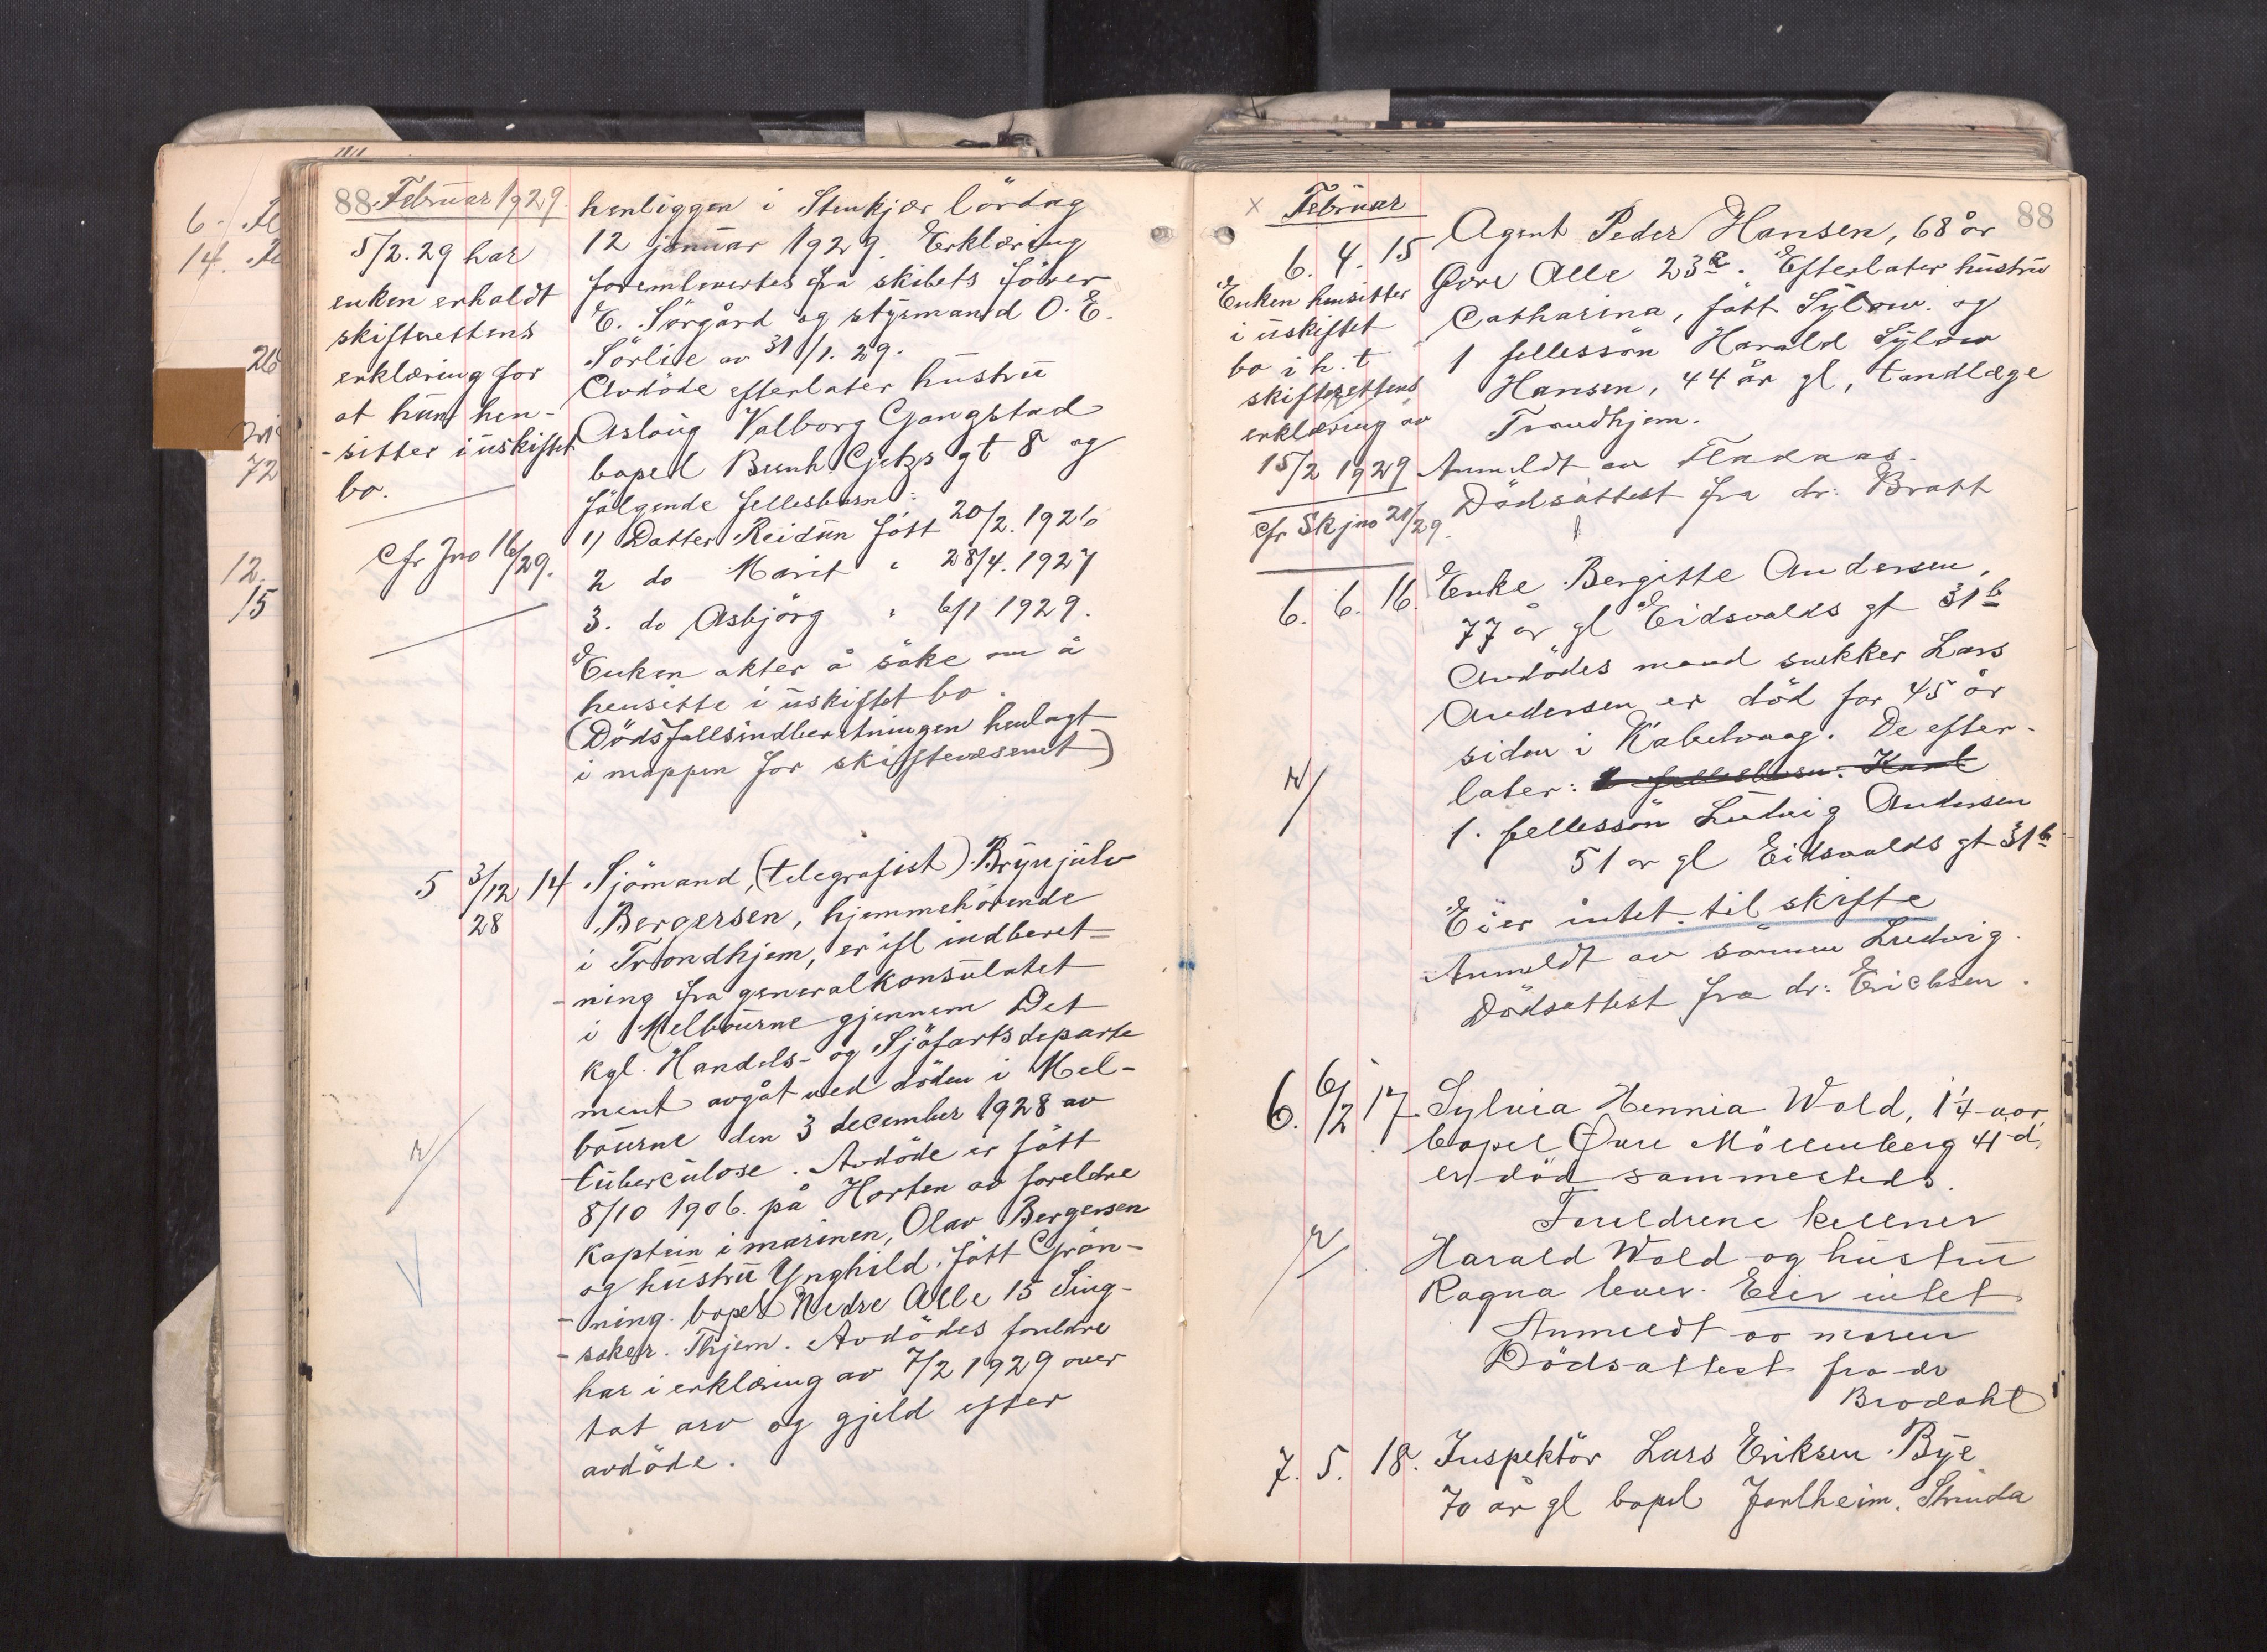 88 Februar 1929.
5/2. 29 har
enken erholdt
skifterettens
erklæring for
at hun hen-
-sitter i uskiftet
bo.
Cfr Jno 16/29.
henliggen i Stenkjær lördag
12 januar 1929. Erklæring
foremlevertes fra skibets förer
E. Sörgård og styrmand O. E.
Sörlie av 31/1. 29.
Avdöde efterlater hustru
Aslaug Valborg Gangstad
bopel Bernh. Getzs gt 8 og
fölgende fellesbarn:
1) Datter Reidun fött 20/2. 1926
2 do Marit " 28/4. 1927
3. do Asbjörg " 6/1 1929.
Enken akter å söke om å
hensitte i uskiftet bo.
(Dödsfallsindberetningen henlagt
i mappen for skiftevesenet)
5 3/12 28 14 Sjömand, (telegrafist) Brynjulv
Bergersen, hjemmehörende
i Trondhjem, er ifl indberet-
-ning fra generalkonsulatet
i Melbourne gjennem Det
kgl. Handels- og Sjöfartsdeparte
ment avgåt ved döden i Mel-
bourne den 3 december 1928 av
tuberculose. Avdöde er fött
8/10 1906. på Horten av foreldre
Kaptein i marinen, Olav Bergersen
og hustru Ynghild, fött Grön-
-ning. bopel Nedre Alle 15 Sing-
-saker. Thjem. Avdödes foreldre
har i erklæring av 7/2 1929 over
tat arv og gjeld efter
avdöde.
x Februar 88
6. 4. 15 Agent Peder Hansen, 68 år
Övre Alle 23c. Efterlater hustru
Catharina, fött Sylow. og
1 fellessön Harald Sylow
Hansen, 44 år gl, tandlæge
Trondhjem.
Anmeldt av
Dödsattest fra dr: Bratt
Enken hensitter
i uskiftet
bo i h. t
skifterettens
erklæring av
15/2 1929
cfr Skjno 21/29.
6. 6. 16. Enke Bergitte Andersen,
77 år gl Eidsvolds gt 31b
Avdödes mand snekker Lars
Andersen er död for 45 år
siden i Kabelvaag. De efter-
later: 1 fellesbarn: Karl
1. fellessön Ludvig Andersen
51 år gl Eidsvolds gt 31b
Eier intet til skifte
Anmeldt av sönnen Ludvig.
Dödsattest fra dr: Erichsen.
6. 6/2 17. Sylvia Hennia Wold, 1 1/4 aar,
bopel Övre Möllenberg 41 d.
er död sammesteds.
Foreldrene kellner
Harald Wold og hustru
Ragna lever. Eier intet
Anmeldt av moren
Dödsattest fra dr
Brodahl
7. 5. 18. Inspektör Lars Eriksen Bye
70 år gl bopel Jarlheim, Strinda